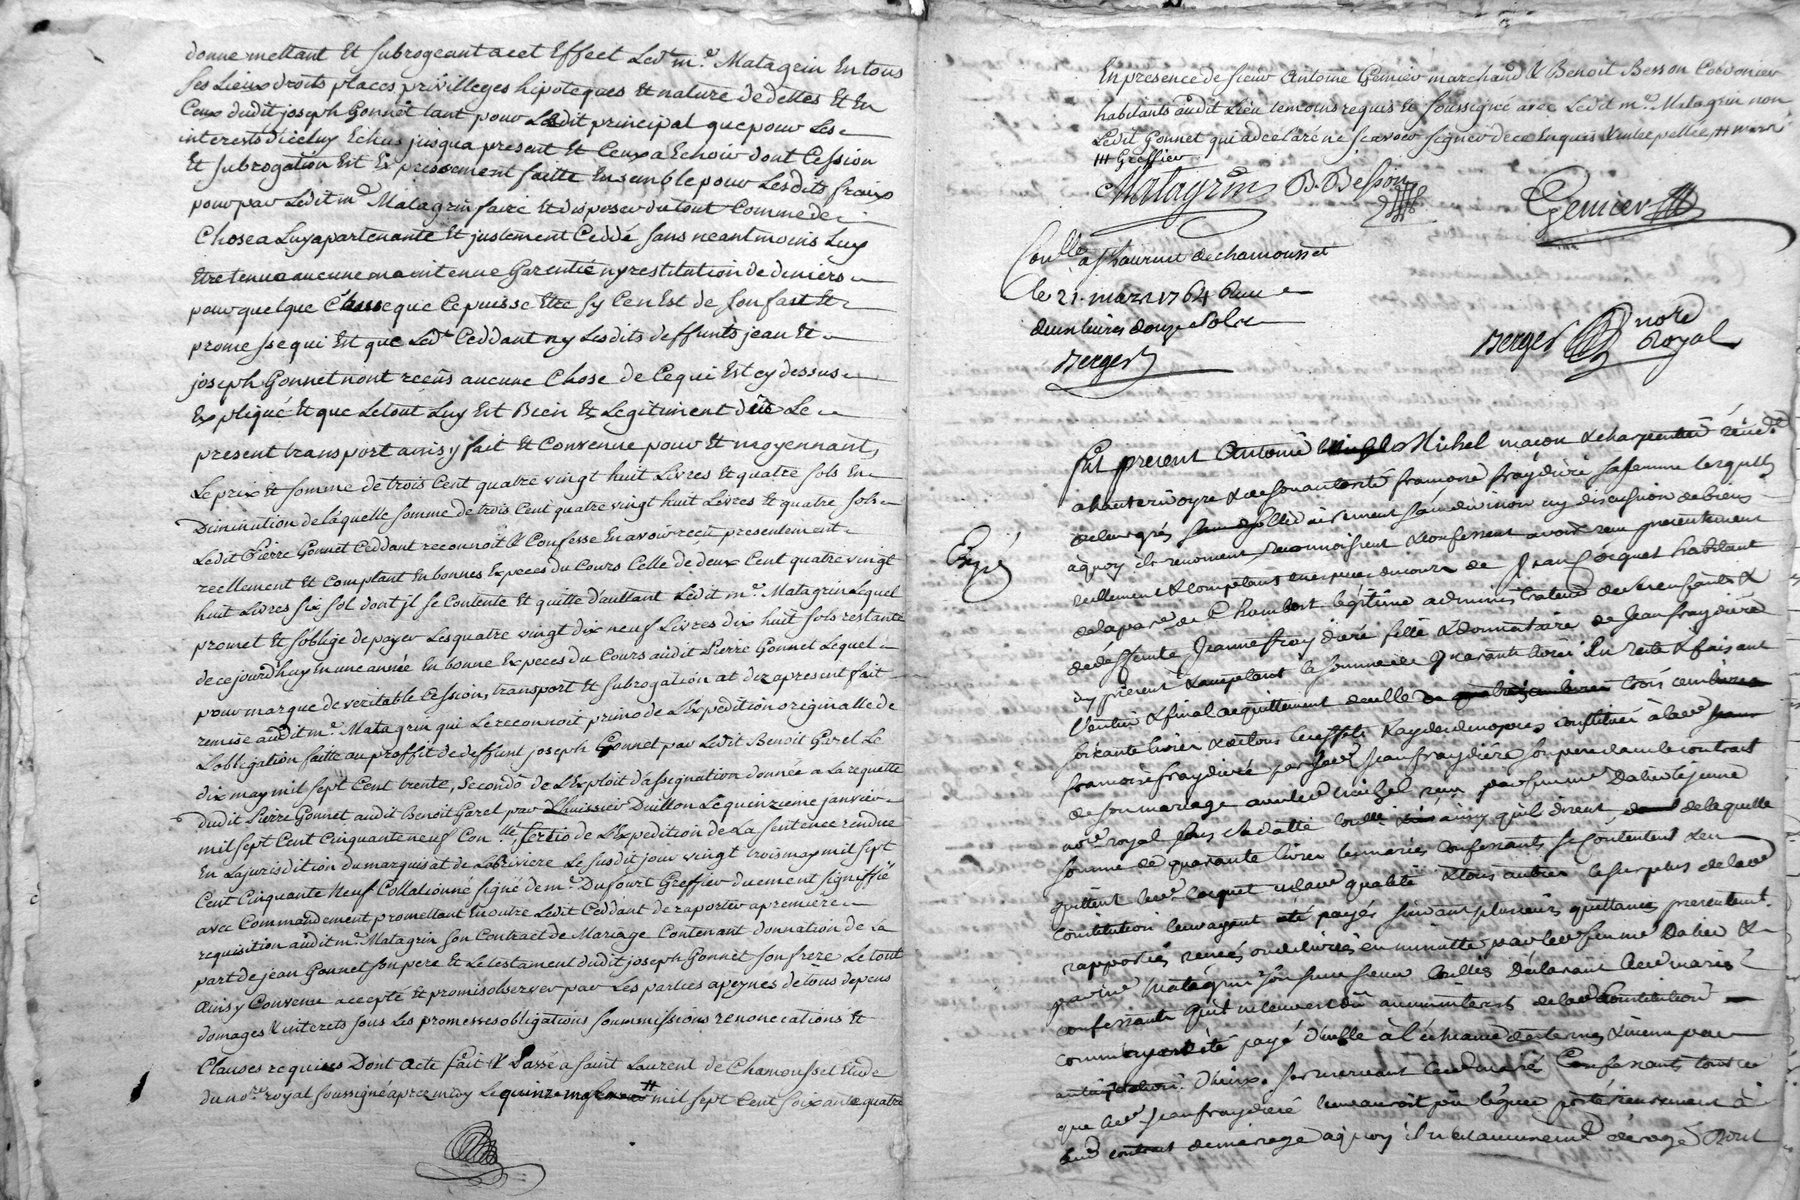 donne mettant Et subrogeant a cet Effect Led.t m.e Matagrin En tous
ses Lieux droits places privilleges hipoteques Et nature de dettes Et En
Ceux dudit joseph Gonnet tant pour Ledit principal que pour Les
interests d'iceluy Echus jusqu'a present Et Ceux a Echoir dont Cession
Et subrogation Est Expressement faitte Ensemble pour Lesdits fraix
pour par Ledit m.e Matagrin faire Et disposer du tout Comme de
Chose a Luy apartenante Et justement Ceddé sans neantmoins Luy
Etre tenu a aucune maintenue Garentie ny restitution de deniers
pour quelque Cause que Ce puisse Etre sy Ce n'Est de son fait Et
promesse qui Est que Led.t Ceddant ny Lesdits deffunts jean Et
joseph Gonnet n'ont reçûs aucune Chose de Ce qui Est cy dessus
Expliqué Et que Le tout Luy Est Bien Et Legitiment dû Le
present transport ainsy fait Et Convenu pour Et moyennant
Le prix Et somme de trois Cent quatre vingt huit Livres Et quatre sols En
Diminution de laquelle somme de trois Cent quatre vingt huit Livres Et quatre sols
Ledit Pierre Gonnet Ceddant reconnoit & Confesse En avoir reçu presentement
reellement Et Comptant En bonnes Especes du Cours Celle de deux Cent quatre vingt
huit Livres six sol dont jl se Contente Et quitte d'aultant Ledit m.e Matagrin Lequel
promet Et s'oblige de payer Les quatre vingt dix neuf Livres dix huit sols restante
de ce jourd'huy En une année En bonne Especes du Cours audit Pierre Gonnet Lequel
pour marque de veritable Cession, transport Et subrogation at dez a present fait
remise audit m.e Matagrin qui Le reconnoit primo de L'Expedition originalle de
L'obligation faitte au proffit de deffunt joseph Gonnet par Ledit Benoit Garel Le
dix may mil sept Cent trente, Secondò de L'Exploit d'assegnation donnée a La requette
dudit Pierre Gonnet audit Benoit Garel par L'huissier Duillon Le quinzieme janvier
mil sept Cent Cinquante neuf Con.llé tertio de L'Expedition de La sentence rendue
En La jurisdition du marquisat de La Riviere Le susdit jour vingt trois may mil sept
Cent Cinquante Neuf Collationné signé de m.e Dufourt Greffier duement signiffié
avec Commandement promettant En outre Ledit Ceddant de raporter a premiere
requisition audit m.e Matagrin son Contract de Mariage Contenant donnation de la
part de jean Gonnet son pere Et Le testament dudit joseph Gonnet son frere Le tout
Ainsy Convenu accepté Et promis observer par Les parties a peynes de tous depens
domages & interets sous Les promesses obligations soummissions renonciations Et
Clauses requises Dont Acte fait & Passé a Saint Laurent de Chamousset Etude
du no.re royal soussigné apres midy Le quinze mil sept Cent soixante quatre
En presence de sieur Antoine Grenier marchand & Benoit Besson Cordonier
habitants audit Lieu temoins requis Et soussigné avec Ledit m.e Matagrin non
Ledit Gonnet qui a declaré ne scavoir signer de ce Enquis & interpellée, ++ mars
+++ Greffier
Matagrin B. Besson
Grenier
Coullé a st laurent de chamousset
le 21. mars 1764 Reçu
deux livres douze sols
Berger
Berger nore
Royal
Expié
fut present Antoine Michel maçon & charpentier resid.t
a hauterivoyre & de son autorité françoise fraydiere sa femme lesquels
de leur grés solidairement sans division ny discussion de biens
a quoy ils renoncent, reconnoissent & confessent avoir reçu presentement
reellement & comptant en especes du cours de Jean Coequet habitant
de la par.se de Chambost legitime administrateur de ses enfants &
de deffunte Jeanne fraydiere fille & donnataire de Jean fraydiere
cy present & acceptant la somme de Quarante livres du reste & faisant
l'entier & final acquittement de celle de trois cent
soixante livres & de tous les effets constitués a la d.e
françoise fraydiere par led. Jean fraydiere son pere dans le contract
de son mariage avec led. michel reçu par feu me Dalin le jeune
no.re royal sous sa datte ainsy qu'ils dirent, de laquelle
somme de quarante livres les mariés confessants se contentent & en
quittent led. Coequet en lad.e qualité & tous autres le surplus de lad.e
constitution leur ayant été payés suivant plusieurs quittances presentement
rapportés par led. feu me Dalin &
par me Matagrin son successeur Declarant lesd. mariés
confessants qu'il ne leur est dû aucun interets de lad.e constitution
comme ayant été payé d'iceux à l'échéance des termes &
d'iceux. lesd. mariés Confessants tout ce
que led. Jean fraydiere leur auroit pû léguer postérieurement à
leur contract de mariage à quoy il n'est aucunem.t dérogé Dont